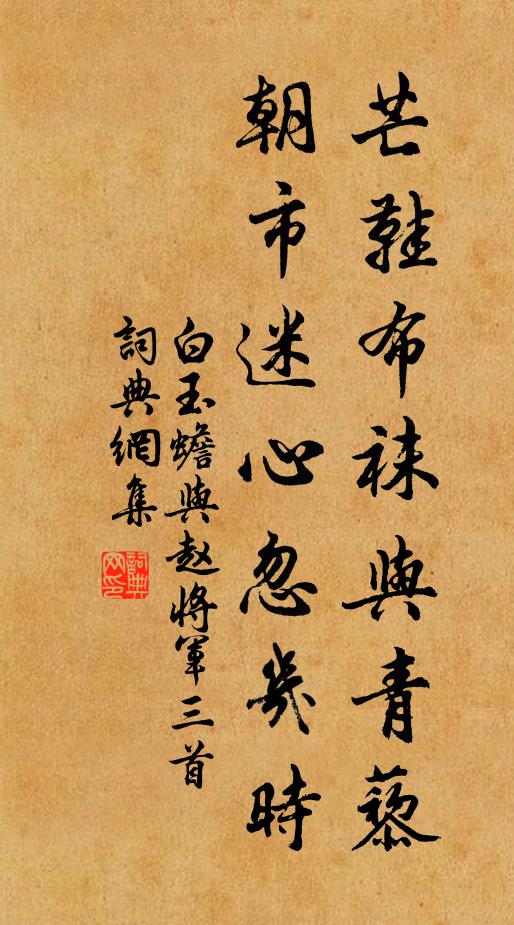 芒鞋布袜與青藜
朝市迷心忽幾時
白玉蟾與赵將軍三首
詞典網集
詞典网印